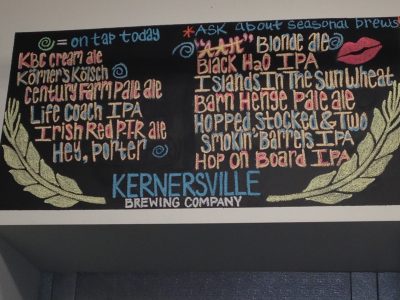 = on tap today
KBC cream ale
Körner's Kölsch
Century Farm Pale ale
Life Coach IPA
Irish Red PTR ale
Hey, Porter
*Ask about seasonal brews*
Blonde ale
Black H2O IPA
Islands In The Sun Wheat
Barn Henge Pale ale
Hopped Stocked & Two
Smokin' Barrels IPA
Hop On Board IPA
KERNERSVILLE
BREWING COMPANY